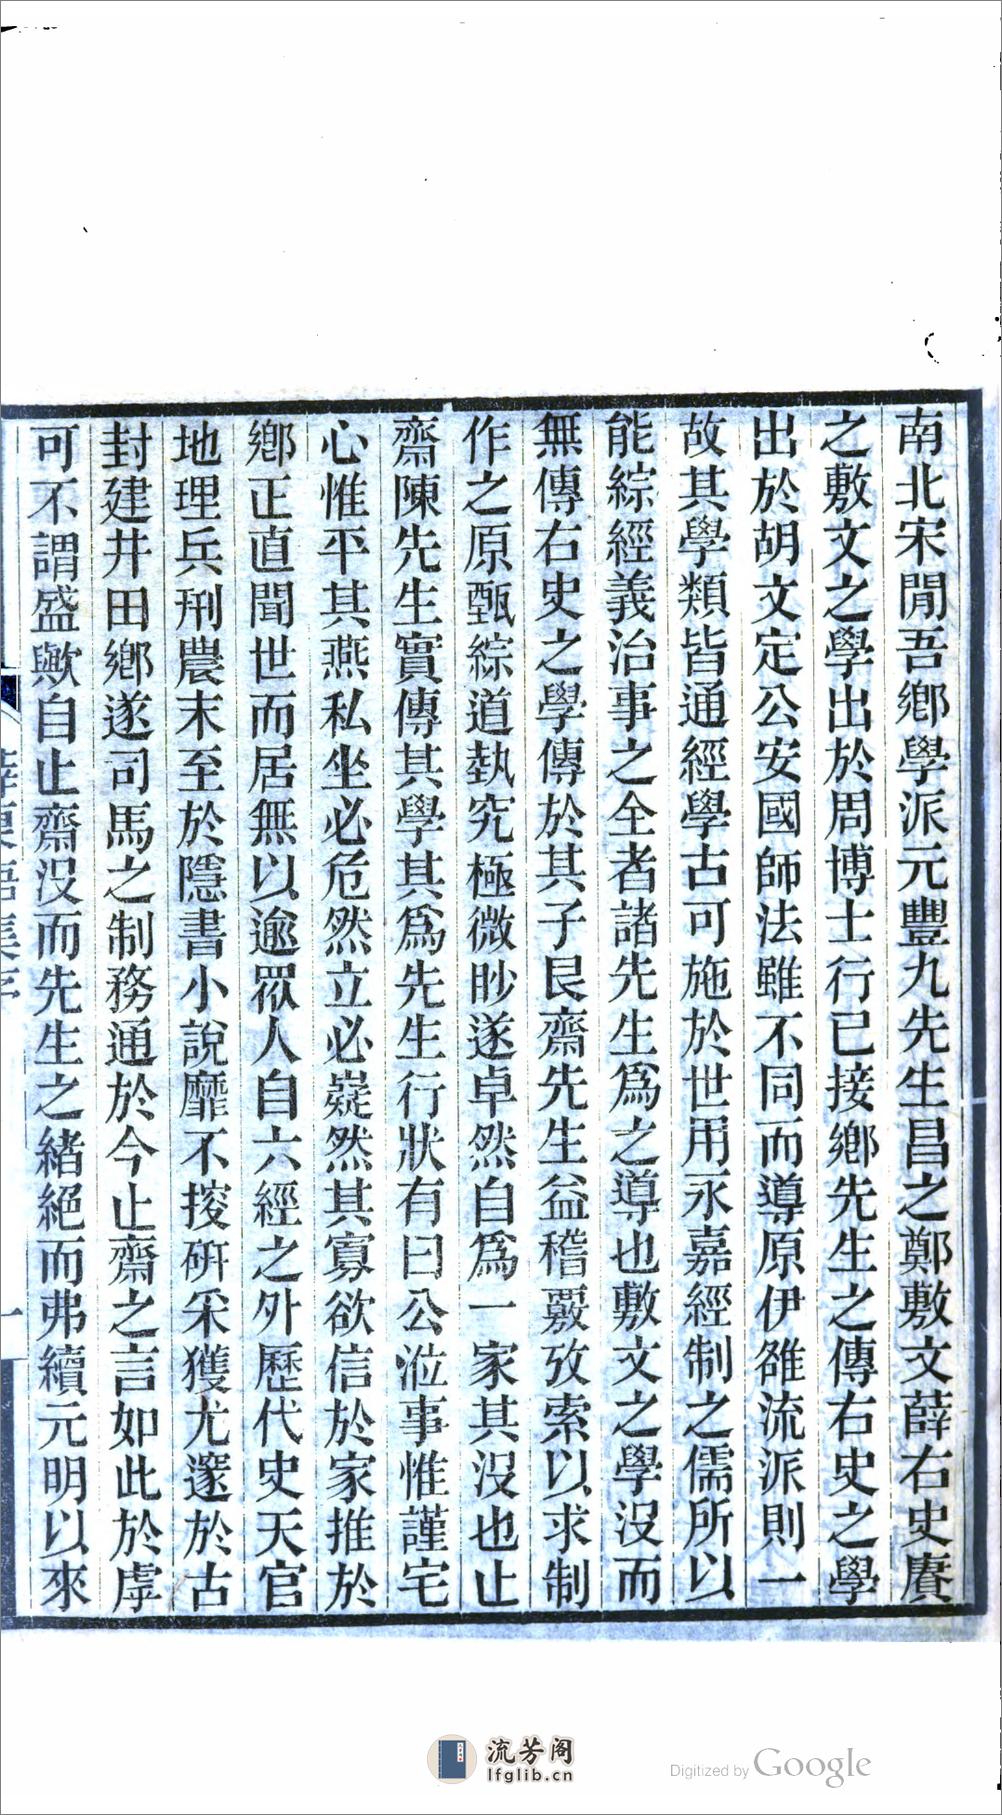 南北宋閒吾鄉學派元豐九先生昌之鄭敷文薛右史賡
之敷文之學出於周博士行已接鄉先生之傳右史之學
出於胡文定公安國師法雖不同而導原伊雒流派則一
故其學類皆通經學古可施於世用永嘉經制之儒所以
能綜經義治事之全者諸先生爲之導也敷文之學沒而
無傳右史之學傳於其子艮齋先生益稽覈攷索以求制
作之原甄綜道埶究極微眇遂卓然自爲一家其沒也止
齋陳先生實傳其學其爲先生行狀有曰公涖事惟謹宅
心惟平其燕私坐必危然立必嶷然其寡欲信於家推於
鄉正直聞世而居無以逾眾人自六經之外歷代史天官
地理兵刑農末至於隱書小說靡不㩴硏采獲尤邃於古
封建井田鄉遂司馬之制務通於今止齋之言如此於虖
可不謂盛歟自止齋沒而先生之緒絕而弗續元明以來
薛浪語集序
一
流芳阁
lfglib.cn
Digitized by Google